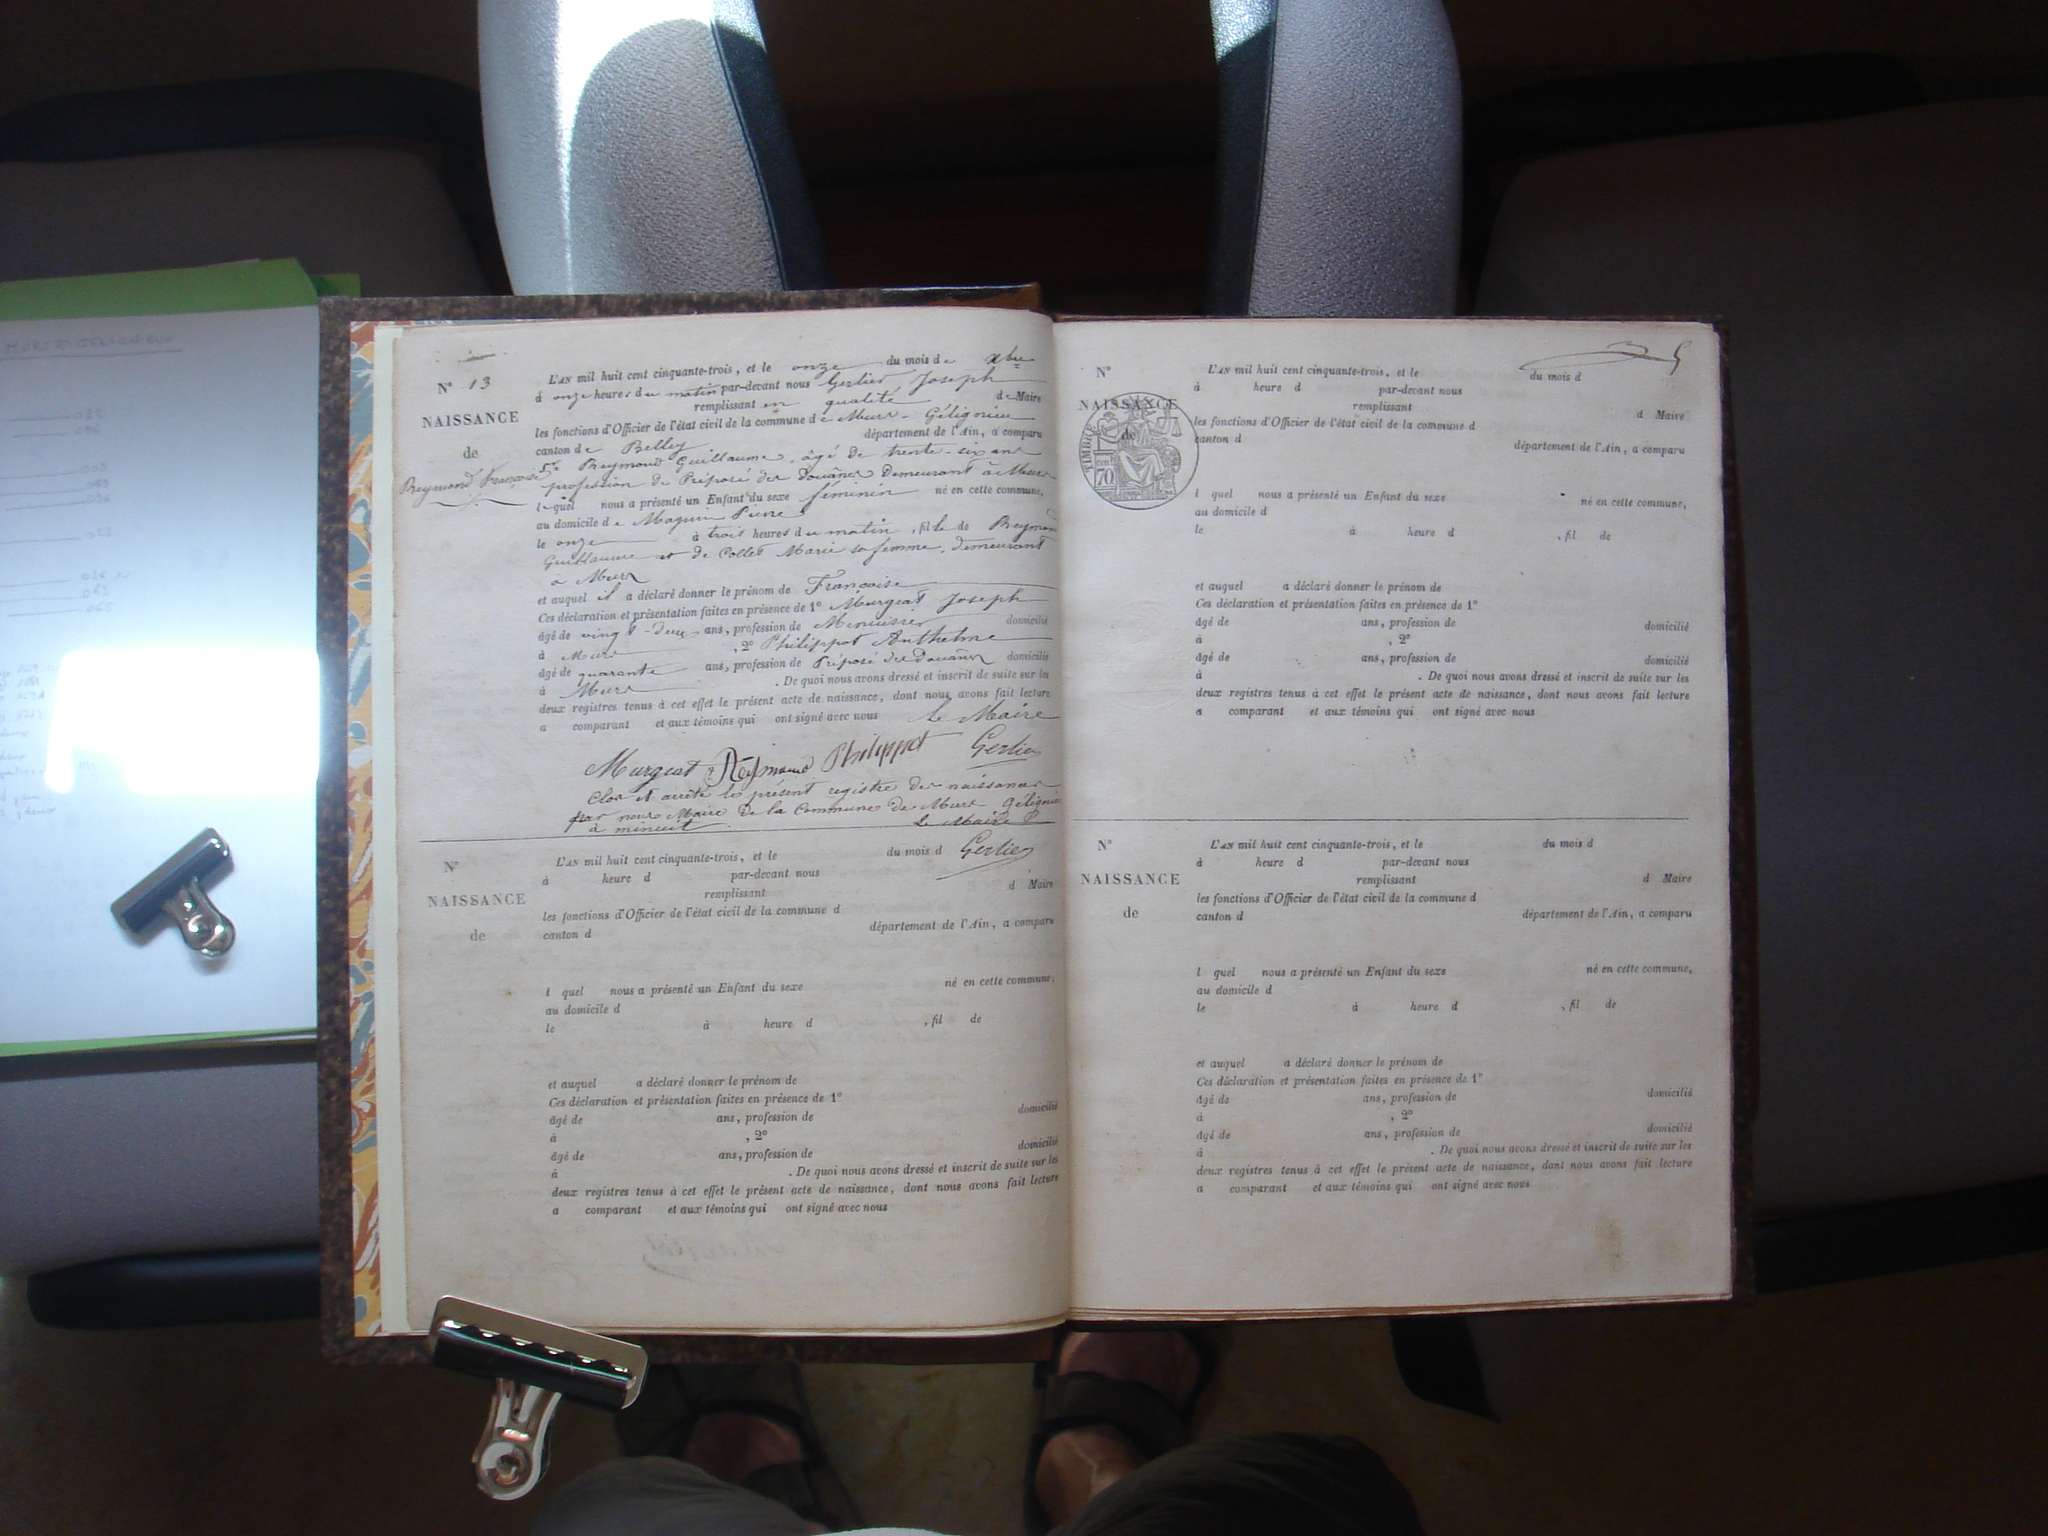 N° 13
NAISSANCE
de
Reymond Françoise
L'AN mil huit cent cinquante-trois, et le onze du mois de xbre
à onze heures du matin par-devant nous Gerlier Joseph
remplissant en qualité de Maire
les fonctions d'Officier de l'état civil de la commune de Murs-Gélignieu
canton de Belley département de l'Ain, a comparu
Sr Reymond Guillaume, âgé de trente-six ans
profession de Préposé des Douânes demeurant à Murs
lequel nous a présenté un Enfant du sexe féminin né en cette commune,
au domicile de Maguin Pierre
le onze à trois heures du matin, fille de Reymond
Guillaume et de Collet Marie sa femme, demeurant
à Murs
et auquel il a déclaré donner le prénom de Françoise
Ces déclaration et présentation faites en présence de 1° Murgeat Joseph
âgé de vingt-deux ans, profession de Menuisier domicilié
à Murs, 2° Philippot Anthelme
âgé de quarante ans, profession de Préposé des Douânes domicilié
à Murs. De quoi nous avons dressé et inscrit de suite sur les
deux registres tenus à cet effet le présent acte de naissance, dont nous avons fait lecture
a comparant et aux témoins qui ont signé avec nous Le Maire
Murgeat Reymond Philippot Gerlier
Clos et arrêté le présent registre des naissances
par nous Maire de la Commune de Murs Gélignieu
à minuit Le Maire
Gerlier
N°
NAISSANCE
de
L'AN mil huit cent cinquante-trois, et le du mois d
à heure d par-devant nous
remplissant d Maire
les fonctions d'Officier de l'état civil de la commune d
canton d département de l'Ain, a comparu
l quel nous a présenté un Enfant du sexe né en cette commune,
au domicile d
le à heure d , fil de
et auquel a déclaré donner le prénom de
Ces déclaration et présentation faites en présence de 1°
âgé de ans, profession de domicilié
à , 2°
âgé de ans, profession de domicilié
à . De quoi nous avons dressé et inscrit de suite sur les
deux registres tenus à cet effet le présent acte de naissance, dont nous avons fait lecture
a comparant et aux témoins qui ont signé avec nous
N°
NAISSANCE
de
TIMBRE
70
L'AN mil huit cent cinquante-trois, et le du mois d
à heure d par-devant nous
remplissant d Maire
les fonctions d'Officier de l'état civil de la commune d
canton d département de l'Ain, a comparu
l quel nous a présenté un Enfant du sexe né en cette commune,
au domicile d
le à heure d , fil de
et auquel a déclaré donner le prénom de
Ces déclaration et présentation faites en présence de 1°
âgé de ans, profession de domicilié
à , 2°
âgé de ans, profession de domicilié
à . De quoi nous avons dressé et inscrit de suite sur les
deux registres tenus à cet effet le présent acte de naissance, dont nous avons fait lecture
a comparant et aux témoins qui ont signé avec nous
N°
NAISSANCE
de
L'AN mil huit cent cinquante-trois, et le du mois d
à heure d par-devant nous
remplissant d Maire
les fonctions d'Officier de l'état civil de la commune d
canton d département de l'Ain, a comparu
l quel nous a présenté un Enfant du sexe né en cette commune,
au domicile d
le à heure d , fil de
et auquel a déclaré donner le prénom de
Ces déclaration et présentation faites en présence de 1°
âgé de ans, profession de domicilié
à , 2°
âgé de ans, profession de domicilié
à . De quoi nous avons dressé et inscrit de suite sur les
deux registres tenus à cet effet le présent acte de naissance, dont nous avons fait lecture
a comparant et aux témoins qui ont signé avec nous